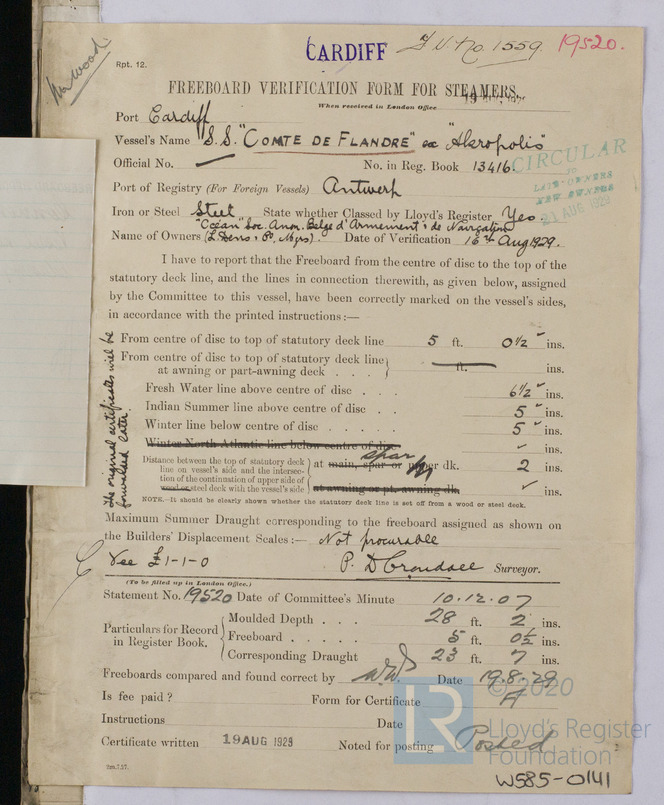 Mr Wood
Rpt. 12.
CARDIFF
F.V. No. 1559.
19520.
FREEBOARD VERIFICATION FORM FOR STEAMERS.
When received in London Office
Port Cardiff
Vessel's Name S.S. "COMTE DE FLANDRE" ex "Akropolis"
Official No. — No. in Reg. Book 13416.
CIRCULAR
TO
LATE OWNERS
NEW OWNERS
21 AUG 1929
Port of Registry (For Foreign Vessels) Antwerp
Iron or Steel Steel State whether Classed by Lloyd's Register Yes.
"Océan" Soc. Anon. Belge d'Armement & de Navigation
Name of Owners (L. Dens & Co, Mgrs). Date of Verification 16th Aug 1929.
I have to report that the Freeboard from the centre of disc to the top of the
statutory deck line, and the lines in connection therewith, as given below, assigned
by the Committee to this vessel, have been correctly marked on the vessel's sides,
in accordance with the printed instructions:—
The original certificates will be
forwarded later.
From centre of disc to top of statutory deck line 5 ft. 0½ ins.
From centre of disc to top of statutory deck line
at awning or part-awning deck . . . ft. ins.
Fresh Water line above centre of disc . . . 6½ ins.
Indian Summer line above centre of disc . . 5 ins.
Winter line below centre of disc . . . . 5 ins.
Winter North Atlantic line below centre of disc ins.
Distance between the top of statutory deck
line on vessel's side and the intersec-
tion of the continuation of upper side of
wood or steel deck with the vessel's side
spar
at main, spar or upper dk. 2 ins.
at awning or pt. awning dk. ins.
NOTE.—It should be clearly shown whether the statutory deck line is set off from a wood or steel deck.
Maximum Summer Draught corresponding to the freeboard assigned as shown on
the Builders' Displacement Scales:— Not procurable
Fee £1-1-0 P. D Crondace Surveyor.
(To be filled up in London Office.)
Statement No. 19520 Date of Committee's Minute 10.12.07
Particulars for Record
in Register Book.
Moulded Depth . . . . 28 ft. 2 ins.
Freeboard . . . . 5 ft. 0½ ins.
Corresponding Draught 23 ft. 7 ins.
Freeboards compared and found correct by Date 19.8.29
Is fee paid? Form for Certificate A
Instructions Date
Certificate written 19 AUG 1929 Noted for posting Posted
2m.7.27.
LR
© 2020
Lloyd's Register
Foundation
W585-0141